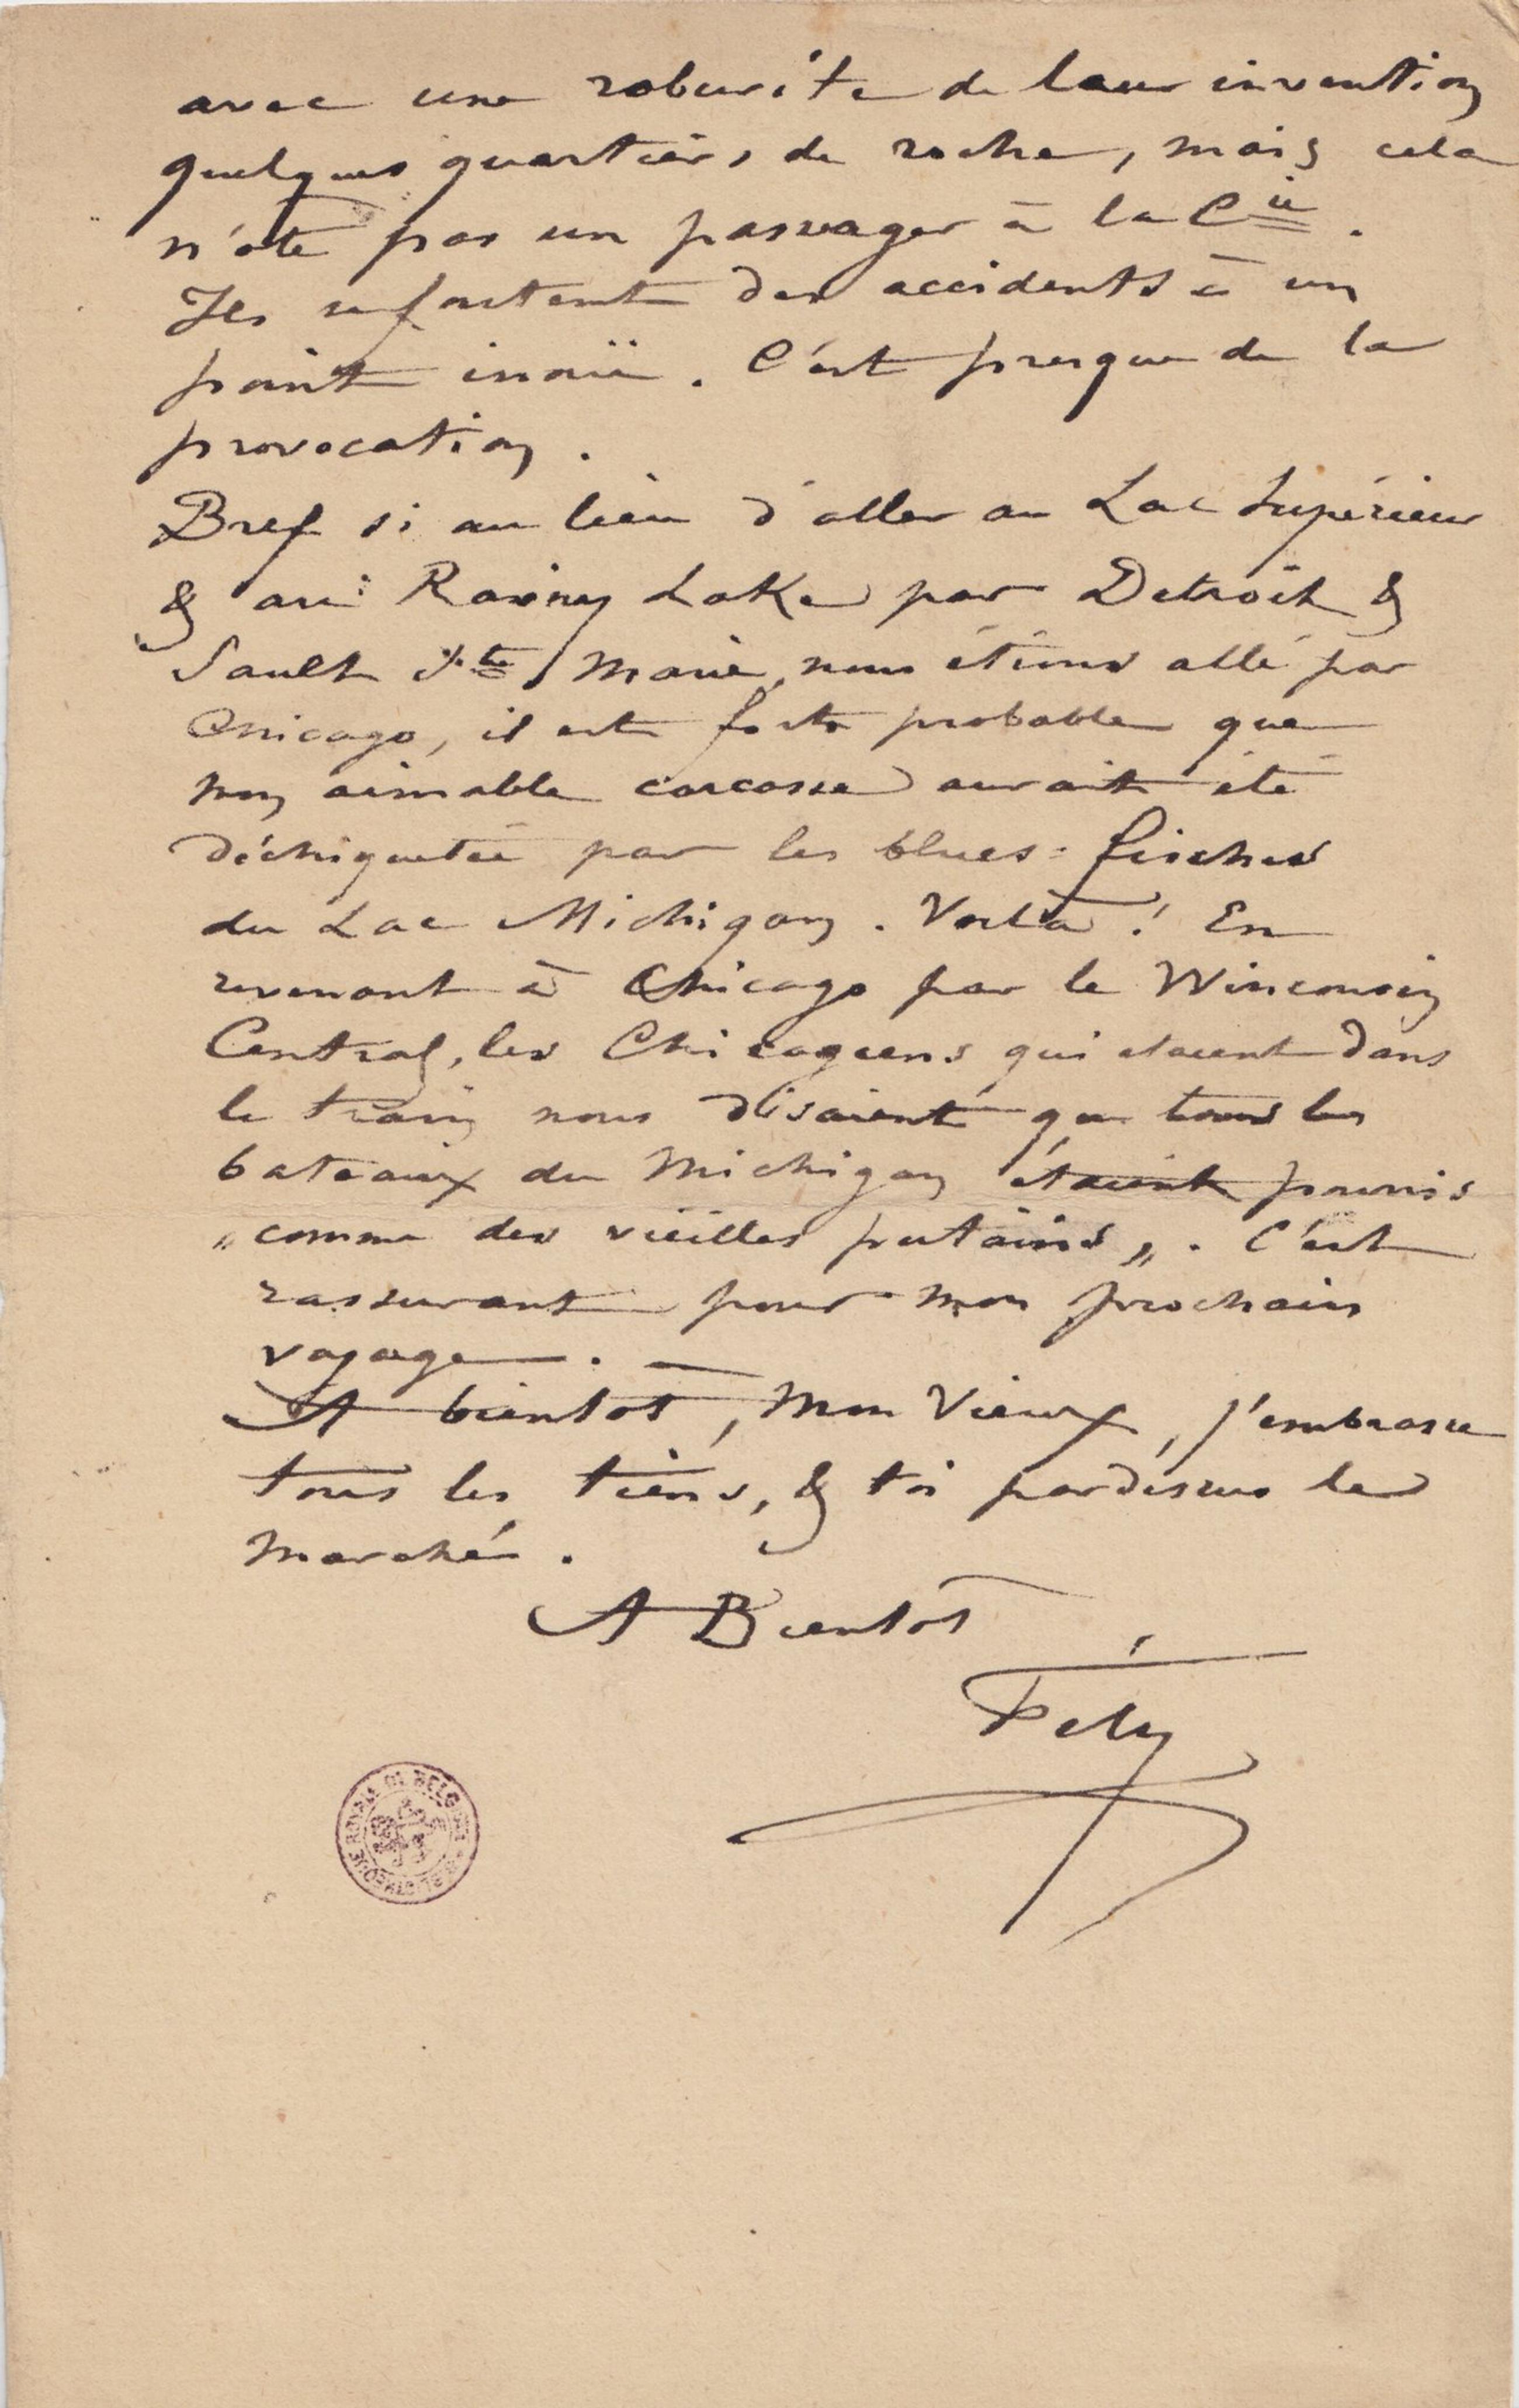 avec une roburite de leur invention
quelques quartiers de roche, mais cela
n'ôte pas un passager à la Cie.
Ils des accidents à un
point inouï. C'est presque de la
provocation.
Bref si au lieu d'aller au Lac Supérieur
& au Rainy Lake par Detroit &
Sault Ste Marie, nous étions allé par
Chicago, il est fort probable que
mon aimable carcasse aurait été
déchiquetée par les blues-fisches
du Lac Michigan. Voilà! En
revenant à Chicago par le Winconsin
Central, les Chicagiens qui étaient dans
le train nous disaient que tous les
bateaux du Michigan étaient pourris
„comme des vieilles putains„. C'est
rassurant pour mon prochain
voyage. —
A bientot, mon Vieux, j'embrasse
tous les tiens, & toi pardessus le
marché.
A Bientot
Fély
BIBLIOTHÈQUE ROYALE DE BELGIQUE